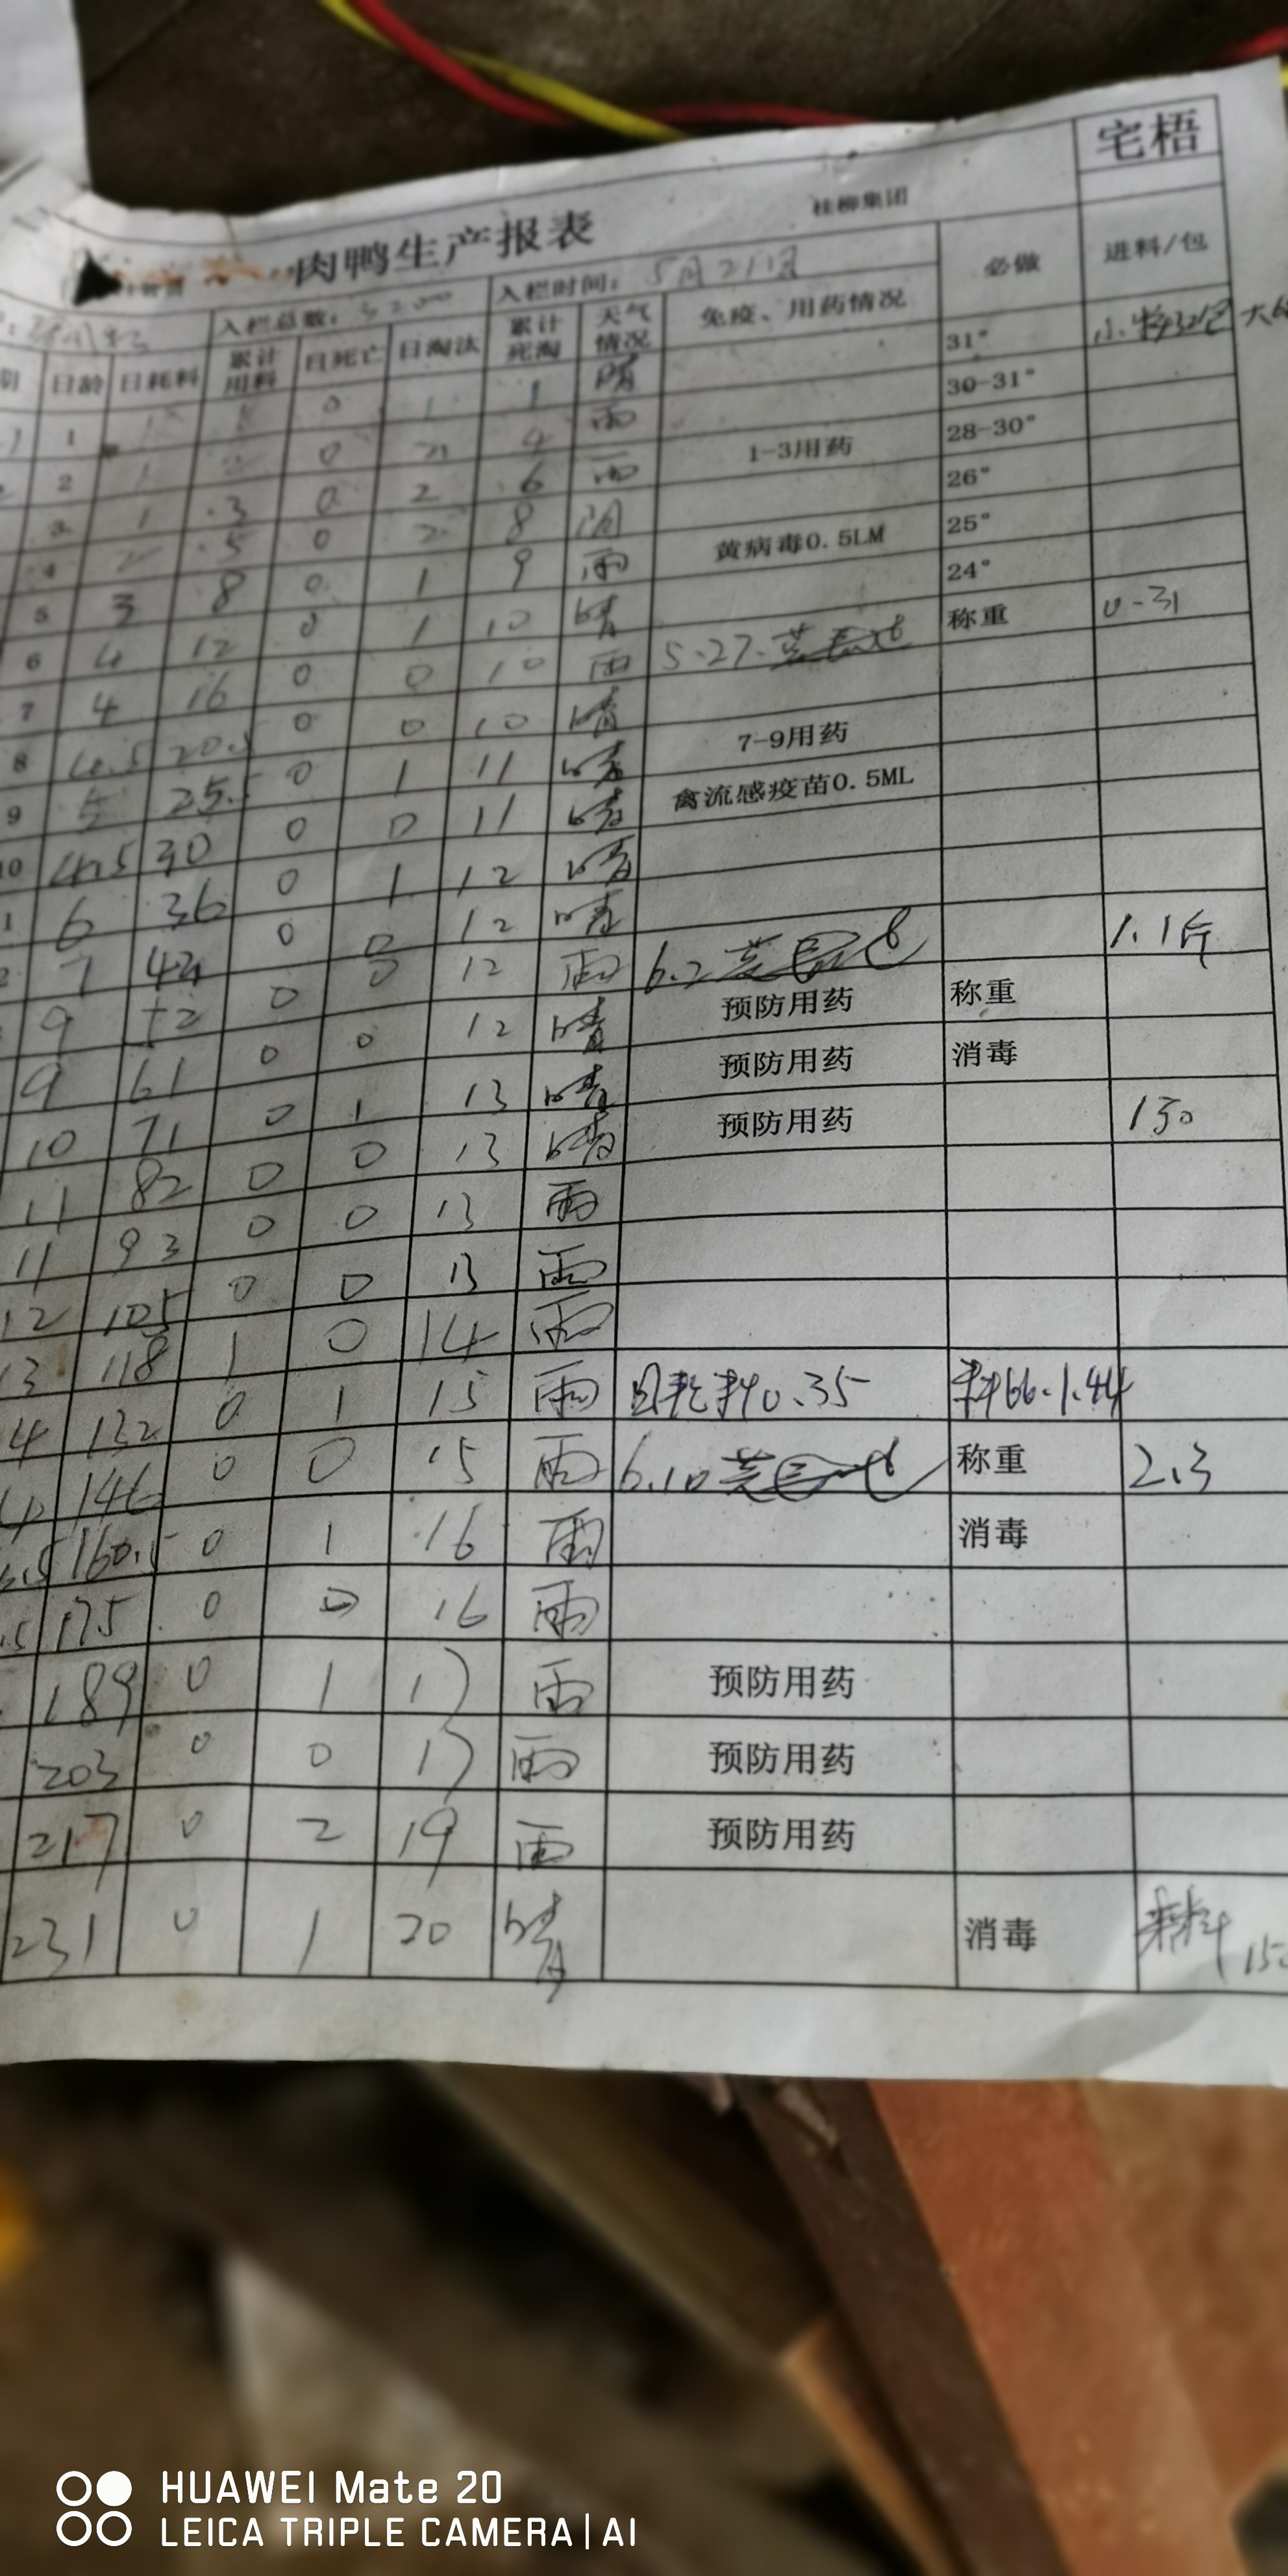 宅梧
肉鸭生产报表 桂柳集团
入栏总数: 入栏时间: 5月21日 必做 进料/包
日龄 日耗料 累计用料 日死亡 日淘汰 累计死淘 天气情况 免疫、用药情况
1 0 1 1 阴 31°
2 1 2 0 4 雨 30-31°
3 1 3 0 2 6 雨 1-3用药 28-30°
2 5 0 2 8 阴 26°
5 3 8 0 1 9 雨 黄病毒0.5LM 25°
6 4 12 0 1 10 晴 24°
7 4 16 0 0 10 雨 5.27. 称重 0-31
8 4.5 20.5 0 0 10 晴
9 5 25.5 0 1 11 晴 7-9用药
10 4.5 30 0 0 11 晴 禽流感疫苗0.5ML
6 36 0 1 12 晴
7 43 0 0 12 晴
9 52 0 0 12 雨 6.2 1.1斤
9 61 0 0 12 晴 预防用药 称重
10 71 0 1 13 晴 预防用药 消毒
11 82 0 0 13 晴 预防用药 150
11 93 0 0 13 雨
12 105 0 0 13 雨
13 118 1 0 14 雨
4 132 0 1 15 雨 日耗料0.35 料66.1.44
146 0 0 15 雨 6.10 称重 2.3
160.5 0 1 16 雨 消毒
.5 175 0 0 16 雨
189 0 1 17 雨 预防用药
203 0 0 17 雨 预防用药
217 0 2 19 雨 预防用药
231 0 1 20 晴 消毒
HUAWEI Mate 20
LEICA TRIPLE CAMERA | AI